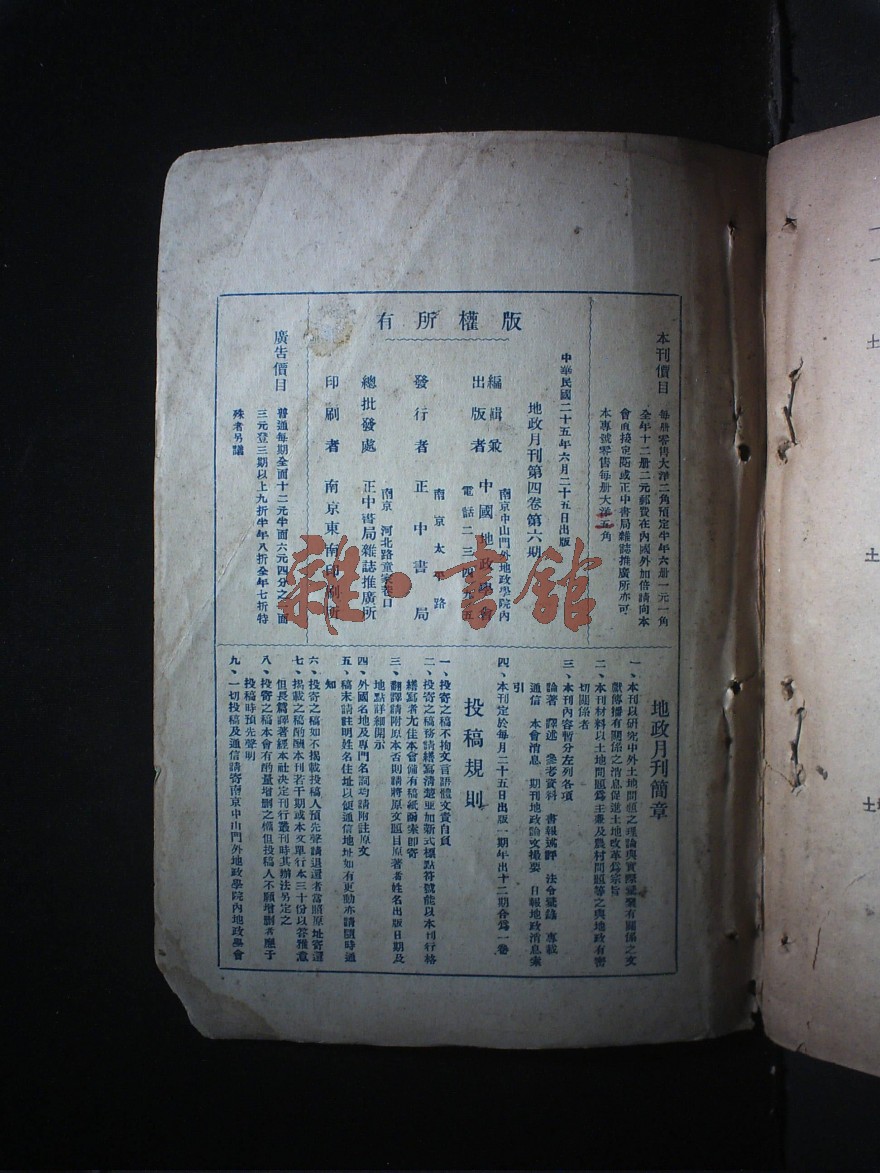 本刊價目
每册零售大洋二角預定半年六册一元一角
全年十二册二元郵費在內國外加倍請向本
會直接定閱或正中書局雜誌推廣所亦可
本專號零售每册大洋五角
版權所有
中華民國二十五年六月二十五日出版
地政月刊第四卷第六期
編輯兼
出版者
中國地政學會
南京中山門外地政學院內
電話二三四九五
發行者
正中書局
南京太平路
總批發處
正中書局雜誌推廣所
南京 河北路童家巷口
印刷者
南京東南印刷所
廣告價目
普通每期全面十二元半面六元四分之一面
三元登三期以上九折半年八折全年七折特
殊者另議
地政月刊簡章
一、本刊以研究中外土地問題之理論與實際彙集有關係之文
獻傳播有關係之消息促進土地改革爲宗旨
二、本刊材料以土地問題爲主兼及農村問題等之與地政有密
切關係者
三、本刊內容暫分左列各項
論著 譯述 參考資料 書報述評 法令彙錄 專載
通信 本會消息 期刊地政論文撮要 日報地政消息索
引
四、本刊定於每月二十五日出版一期年出十二期合爲一卷
投稿規則
一、投寄之稿不拘文言語體文責自負
二、投寄之稿務請繕寫清楚並加新式標點符號能以本刊行格
繕寫者尤佳本會備有稿紙函索即寄
三、翻譯請附原本否則請將原文題目原著者姓名出版日期及
地點詳細開示
四、外國名地及專門名詞均請附註原文
五、稿末請註明姓名住址以便通信地址如有更動亦請隨時通
知
六、投寄之稿如不揭載投稿人預先聲請退還者當照原址寄還
七、揭載之稿酌酬本刊若干期或本文單行本三十份以答雅意
但長篇譯著經本社決定刊行叢刊時其辦法另定之
八、投寄之稿本會有酌量增删之權但投稿人不願增删者應于
投稿時預先聲明
九、一切投稿及通信請寄南京中山門外地政學院內地政學會
雜·書館
土
土
土地